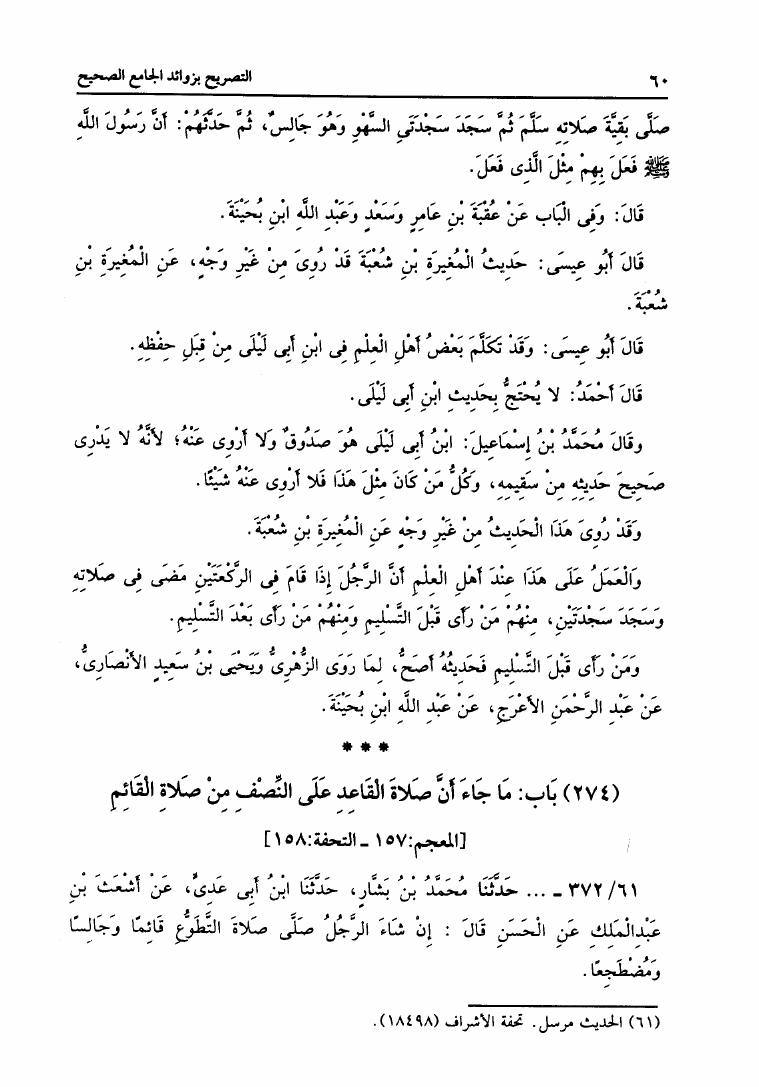 ٦٠ التصريح بزوائد الجامع الصحيح
صَلَّى بَقِيَّةَ صَلَاتِهِ سَلَّمَ ثُمَّ سَجَدَ سَجْدَتَىِ السَّهْوِ وَهُوَ جَالِسٌ، ثُمَّ حَدَّثَهُمْ: أَنَّ رَسُولَ اللَّهِ
ﷺ فَعَلَ بِهِمْ مِثْلَ الَّذِى فَعَلَ.
قَالَ: وَفِى الْبَابِ عَنْ عُقْبَةَ بْنِ عَامِرٍ وَسَعْدٍ وَعَبْدِ اللَّهِ ابْنِ بُحَيْنَةَ.
قَالَ أَبُو عِيسَى: حَدِيثُ الْمُغِيرَةِ بْنِ شُعْبَةَ قَدْ رُوِىَ مِنْ غَيْرِ وَجْهٍ، عَنِ الْمُغِيرَةِ بْنِ
شُعْبَةَ.
قَالَ أَبُو عِيسَى: وَقَدْ تَكَلَّمَ بَعْضُ أَهْلِ الْعِلْمِ فِى ابْنِ أَبِى لَيْلَى مِنْ قِبَلِ حِفْظِهِ.
قَالَ أَحْمَدُ: لَا يُحْتَجُّ بِحَدِيثِ ابْنِ أَبِى لَيْلَى.
وَقَالَ مُحَمَّدُ بْنُ إِسْمَاعِيلَ: ابْنُ أَبِى لَيْلَى هُوَ صَدُوقٌ وَلَا أَرْوِى عَنْهُ؛ لِأَنَّهُ لَا يَدْرِى
صَحِيحَ حَدِيثِهِ مِنْ سَقِيمِهِ، وَكُلُّ مَنْ كَانَ مِثْلَ هَذَا فَلَا أَرْوِى عَنْهُ شَيْئًا.
وَقَدْ رُوِىَ هَذَا الْحَدِيثُ مِنْ غَيْرِ وَجْهٍ عَنِ الْمُغِيرَةِ بْنِ شُعْبَةَ.
وَالْعَمَلُ عَلَى هَذَا عِنْدَ أَهْلِ الْعِلْمِ أَنَّ الرَّجُلَ إِذَا قَامَ فِى الرَّكْعَتَيْنِ مَضَى فِى صَلَاتِهِ
وَسَجَدَ سَجْدَتَيْنِ، مِنْهُمْ مَنْ رَأَى قَبْلَ التَّسْلِيمِ وَمِنْهُمْ مَنْ رَأَى بَعْدَ التَّسْلِيمِ.
وَمَنْ رَأَى قَبْلَ التَّسْلِيمِ فَحَدِيثُهُ أَصَحُّ، لِمَا رَوَى الزُّهْرِىُّ وَيَحْيَى بْنُ سَعِيدٍ الْأَنْصَارِىُّ،
عَنْ عَبْدِ الرَّحْمَنِ الْأَعْرَجِ، عَنْ عَبْدِ اللَّهِ ابْنِ بُحَيْنَةَ.
***
(٢٧٤) بَاب: مَا جَاءَ أَنَّ صَلَاةَ الْقَاعِدِ عَلَى النِّصْفِ مِنْ صَلَاةِ الْقَائِمِ
[المعجم:١٥٧ ـ التحفة:١٥٨]
٣٧٢/٦١ ـ ... حَدَّثَنَا مُحَمَّدُ بْنُ بَشَّارٍ، حَدَّثَنَا ابْنُ أَبِى عَدِىٍّ، عَنْ أَشْعَثَ بْنِ
عَبْدِالْمَلِكِ عَنِ الْحَسَنِ قَالَ : إِنْ شَاءَ الرَّجُلُ صَلَّى صَلَاةَ التَّطَوُّعِ قَائِمًا وَجَالِسًا
وَمُضْطَجِعًا.
(٦١) الحديث مرسل. تحفة الأشراف (١٨٤٩٨).